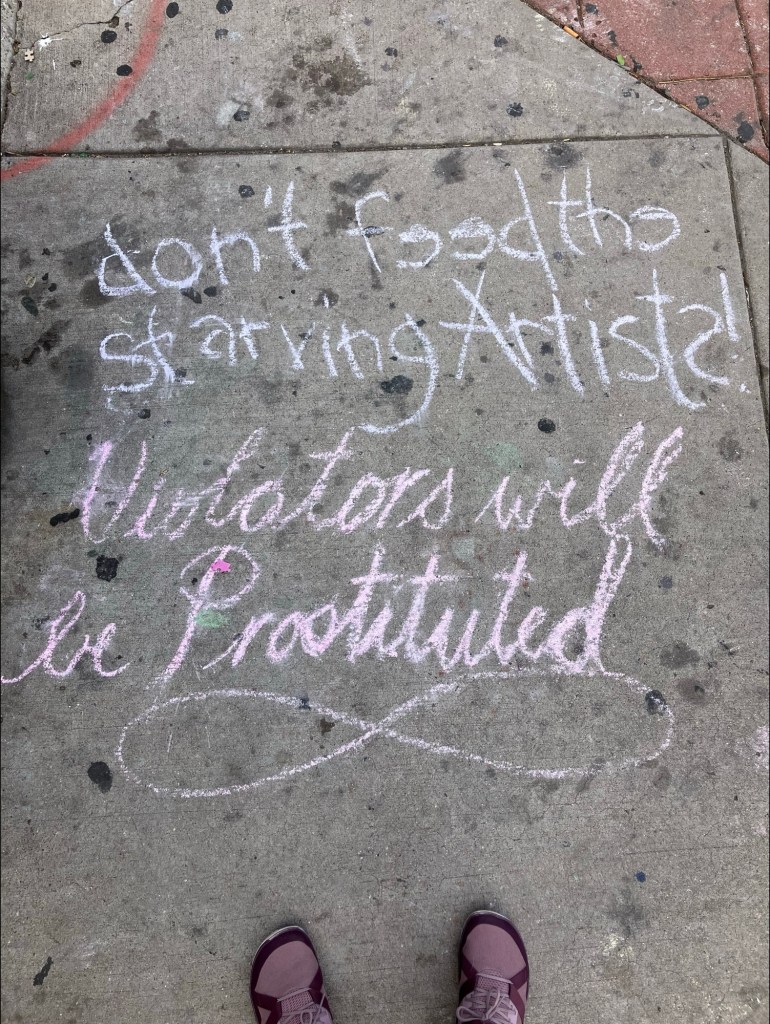 don't feed the
starving Artists!
Violators will
be Prostituted